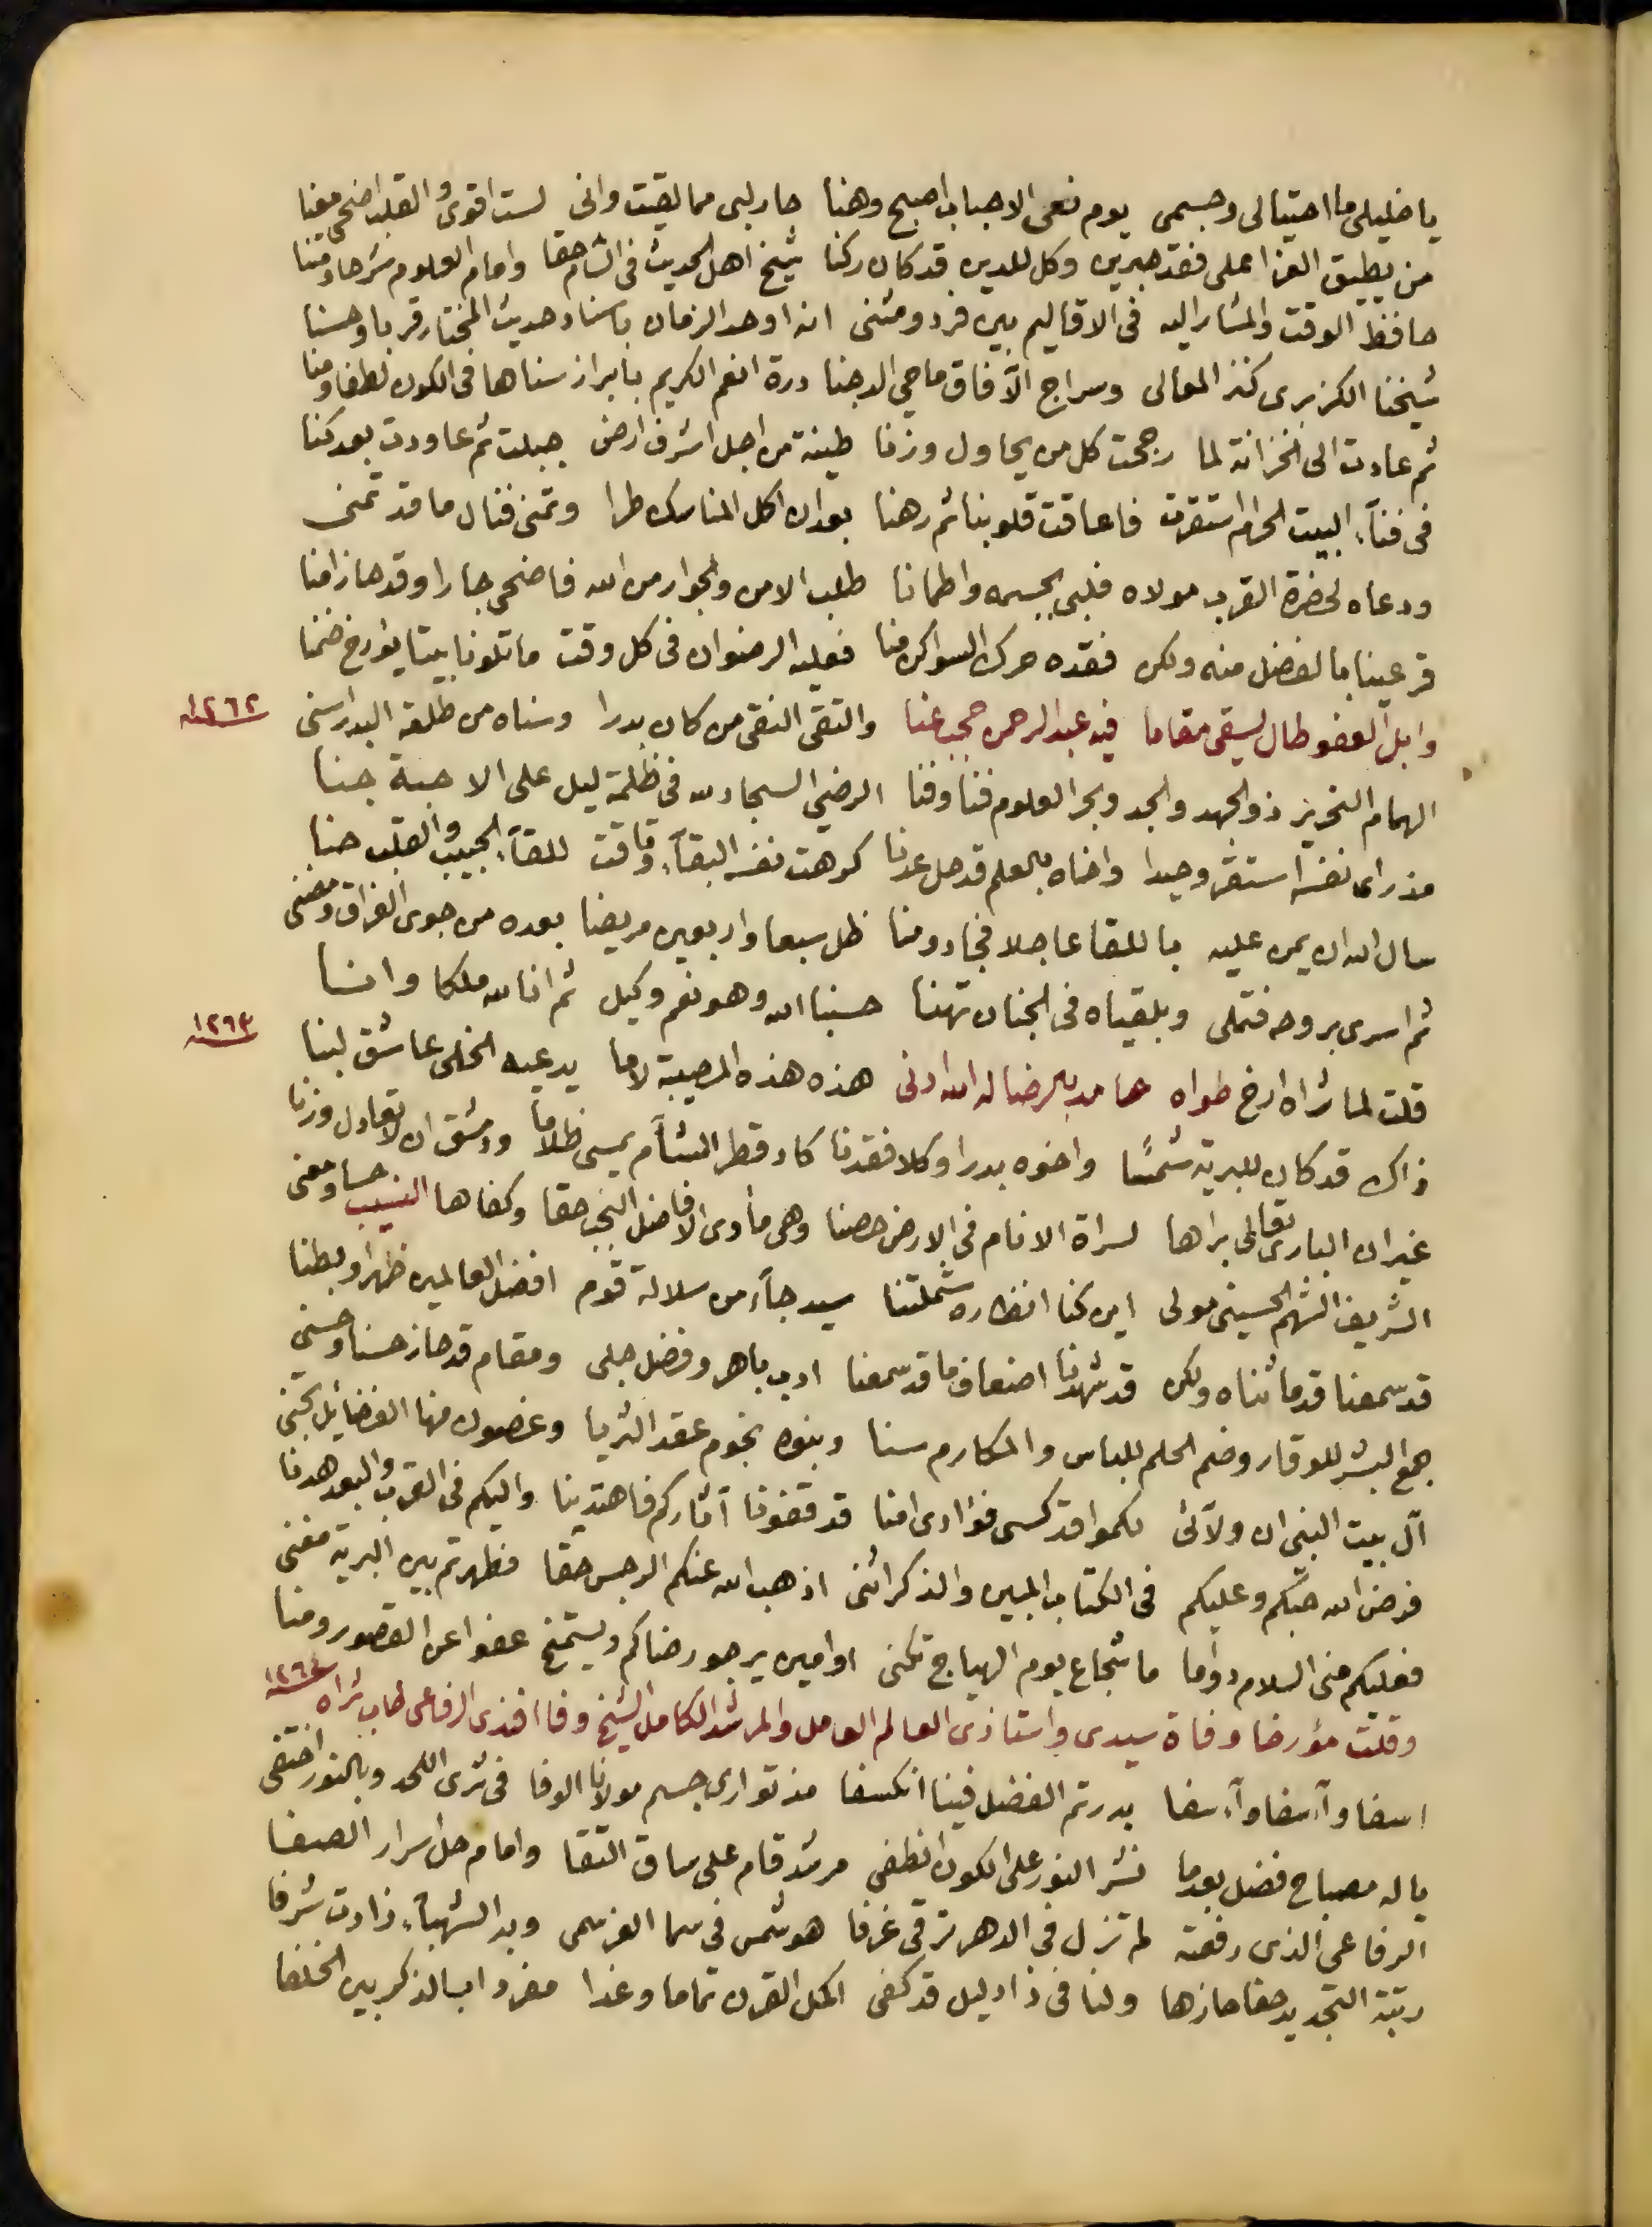 يا خليلي ما احتيالي وجسمي يوم نعي الاحباب اصبح وهنا حار لبي مما لقيت واني لست اقوى والقلب اضحى معنا
من يطيق العزا على فقد حبرين وكل للدين قد كان ركنا شيخ اهل الحديث في الشام حقا وامام العلوم شرحا ومتنا
حافظ الوقت والمشار اليه في الاقاليم بين فرد ومثنى انه اوحد الزمان باسناد حديث المختار قربا وحسنا
شيخنا الكزبري كنز المعالي وسراج الآفاق ماحي الدجنا درة انعم الكريم بابراز سناها في الكون لطفا ومنا
ثم عادت الى الخزانة لما رجحت كل من يحاول وزنا طينة من اجل اشرف ارض جبلت ثم عاودت بعد كنا
في فنآء البيت الحرام استقرت فاعاقت قلوبنا ثم رهنا بعد ان اكمل المناسك طرا وتمنى فنال ما قد تمنى
ودعاه لحضرة القرب مولاه فلبى بجسمه واطمانا طلب الامن والجوار من الله فاضحى جارا وقد حاز امنا
قر عينا بالفضل منه ولكن فقده حرك السواكن منا فعليه الرضوان في كل وقت ما تلونا بيتا يؤرخ ضمنا
وابل العفو طال يسقي مقاما فيه عبد الرحمن حجب عنا والتقي النقي من كان بدرا وسناه من طلعة البدر اسنى ١٢٦٢ سنه
الهمام النحرير ذو الجهد والجد وبحر العلوم فنا وفنا الرضي السجاد لله في ظلمة ليل على الاحبة جنا
مذ راى نفسه استقر وحيدا واخاه بالعلم قد حل عدنا كرهت نفسه البقآء وتاقت للقآء الحبيب والقلب حنا
سال الله ان يمن عليه باللقا عاجلا فجاد ومنا ظل سبعا واربعين مريضا بعده من جوى الفراق ومضنى
ثم اسرى بروحه فتملى وبلقياه في الجنان تهنا حسبنا الله وهو نعم وكيل ثم انا لله ملكا وانسا
قلت لما ثراه ارخ طواه حامد بالرضا له الله ادنى هذه هذه المصيبة لا ما يدعيه الخلي عاشق لبنا ١٢٦٣ سنه
ذاك قد كان للبرية شمسًا واخوه بدرا وكلا فقدنا كاد قطر الشآم يمسي ظلاما ودمشق ان لا تعادل وزنا
غير ان الباري تعالى براها لسراة الانام في الارض حصنا وهي مأوى الافاضل النجب حقا وكفاها النسيب حسا ومعنى
الشريف الشهم الحسيني مولى اين كنا انظاره شملتنا سيد جآء من سلالة قوم افضل العالمين ظهرا وبطنا
قد سمعنا قدما ثناه ولكن قد شهدنا اضعاف ما قد سمعنا ادب باهر وفضل جلي ومقام قد حاز حسنا وحسنى
جمع البشر للوقار وضم الحلم للباس والمكارم سنا وبنوه نجوم عقد الثريا وغصون منها الفضايل تجنى
آل بيت النبي ان ولآئي لكموا قد كسى فؤادي امنا قد قفونا آثاركم فاهتدينا واليكم في القرب والبعد هدنا
فرض الله حبكم وعليكم في الكتاب المبين والذكر اثنى اذهب الله عنكم الرجس حقا فطهرتم بين البرية مغنى
فعليكم مني السلام دواما ما شجاع يوم الهياج تكنى او امين يرجو رضاكم ويستمنح عفوا عن القصور ومنا
وقلت مؤرخا وفاة سيدي واستاذي العالم العامل والمرشد الكامل الشيخ وفا افندي الرفاعي طاب ثراه ١٢٦٤ سنه
اسفا وآ اسفا وآ اسفا بدر تم الفضل فينا انكسفا مذ توارى جسم مولانا الوفا في ثرى اللحد وبالنور اختفى
ياله مصباح فضل بعدما نشر النور على الكون انطفى مرشد قام على ساق التقا وامام حل اسرار الصفا
الرفاعي الذي رفعته لم تزل في الدهر ترقى غرفا هو شمس في سما العز سمى وبه الشهبآء زادت شرفا
رتبة التجديد حقا حازها ولنا في ذا دليل قد كفى اكمل القرن تماما وغدا مفردا بالذكر بين الخلفا